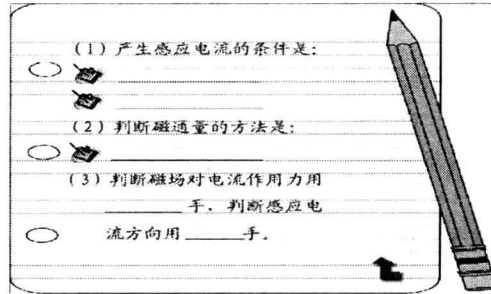 (1)产生感应电流的条件是:
(2)判断磁通量的方法是:
(3)判断磁场对电流作用力用
______手,判断感应电
流方向用______手。